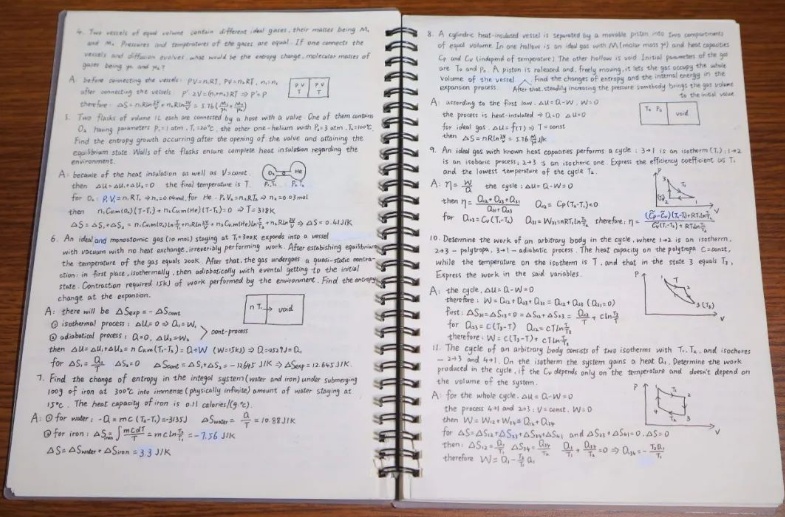 4. Two vessels of equal volume contain different ideal gases, their masses being M₁
and M₂. Pressures and temperatures of the gases are equal. If one connects the
vessels and diffusion evolves, what would be the entropy change, molecular masses of
gases being μ₁ and μ₂?
A: before connecting the vessels: PV=n₁RT, PV=n₂RT, n₁=n₂
PV T PV T
after connecting the vessels P'·2V=(n₁+n₂)RT ⇒ P'=P
therefore
1. Two flasks of volume 1L each are connected by a hose with a valve. One of them contains
O₂ having parameters P₁=1 atm, T₁=20℃, the other one-helium with P₂=3 atm, T₂=100℃.
Find the entropy growth occurring after the opening of the valve and attaining the
equilibrium state. Walls of the flasks ensure complete heat insulation regarding the
environment.
A: because of the heat insulation as well as V=const
O₂ He
then ΔU=ΔU₁+ΔU₂=0 the final temperature is T.
P₁.T₁ P₂.T₂
for O₂: P₁V₁=n₁RT₁ for He: P₂V₂=n₂RT₂
then n₁Cvm(O₂)(T-T₁)+n₂Cvm(He)(T-T₂)=0 ⇒ T=318K
ΔS=ΔS₁+ΔS₂ ⇒ ΔS=0.61J/K
6. An ideal and monatomic gas (10 mol) staying at T₁=300K expands into a vessel
with vacuum with no heat exchange, irreversibly performing work. After establishing equilibrium
the temperature of the gas equals 200K. After that, the gas undergoes a quasi-static contra-
ction: in first place, isothermally, then adiabatically with eventual getting to the initial
state. Contraction required 15kJ of work performed by the environment. Find the entropy
change at the expansion.
A: there will be ΔSexp=-ΔScont
n T₁ → void
① isothermal process: ΔU=0 ⇒ Q₁=W₁
② adiabatical process: Q=0, ΔU₂=W₂
cont-process
then ΔU=ΔU₁+ΔU₂=nCvm(T₁-T₂)=Q+W (W=15kJ) ⇒ Q=-2529J=Q₁
for ΔS₁=Q₁/T₂ ΔS₂=0 ΔScont=ΔS₁+ΔS₂=-12.645 J/K ⇒ ΔSexp=12.645J/K
7. Find the change of entropy in the integral system (water and iron) under submerging
100g of iron at 300℃ into immense (physically infinite) amount of water staying at
15℃. The heat capacity of iron is 0.11 calories/(g·℃).
A: ① for water: -Q=mc(T₂-T₁)=-3135J ΔSwater=Q/T=10.88J/K
② for iron: ΔSiron=∫mcdT/T=mcln T₂/T₁=-7.56 J/K
ΔS=ΔSwater+ΔSiron=3.3 J/K
8. A cylindric heat-insulated vessel is separated by a movable piston into two compartments
of equal volume. In one hollow is an ideal gas with M (molar mass μ) and heat capacities
Cp and Cv (independ of temperature); The other hollow is void. Initial parameters of the gas
are T₀ and P₀. A piston is released and, freely moving, it lets the gas occupy the whole
volume of the vessel. Find the changes of entropy and the internal energy in the
expansion process. After that, steadily increasing the pressure somebody brings the gas volume
to the initial value.
A: according to the first law. ΔU=Q-W, W=0
T₀ P₀ void
the process is heat-insulated ⇒ Q=0 ΔU=0
for ideal gas ΔU=f(T) ⇒ T=const
then
9. An ideal gas with known heat capacities performs a cycle; 3→1 is an isotherm (T₁); 1→2
is an isobaric process; 2→3 is an isothoric one. Express the efficiency coefficient via T₁
and the lowest temperature of the cycle T₂.
A: η=W/Q the cycle: ΔU=Q-W=0
P V
then η= Q₁₂=Cp(T₂-T₁)<0
for Q₂₃=Cv(T₁-T₂) Q₃₁=W₃₁ therefore: η=
10. Determine the work of an arbitrary body in the cycle, where 1→2 is an isotherm,
2→3 - polytropa, 3→1 - adiabatic process. The heat capacity on the polytropa C=const,
while the temperature on the isotherm is T, and that in the state 3 equals T₃.
Express the work in the said variables.
A: the cycle, ΔU=Q-W=0
P 1 2 T 3(T₃) V
therefore: W=Q₁₂+Q₂₃+Q₃₁=Q₁₂+Q₂₃ (Q₃₁=0)
for
therefore: W=C(T₃-T)+CTln T/T₃
11. The cycle of an arbitrary body consists of two isotherms with T₁, T₂, and isochores
- 2→3 and 4→1. On the isotherm the system gains a heat Q₁. Determine the work
produced in the cycle, if the Cv depends only on the temperature and doesn't depend on
the volume of the system.
A: for the whole cycle. ΔU=Q-W=0
P 1 2 3 4 V
the process 4→1 and 2→3: V=const, W=0
then W=W₁₂+W₃₄=Q₁₂+Q₃₄
for ΔS=ΔS₁₂+ΔS₂₃+ΔS₃₄+ΔS₄₁ and ΔS₂₃+ΔS₄₁=0, ΔS=0
then:
therefore W=Q₁-T₂/T₁Q₁